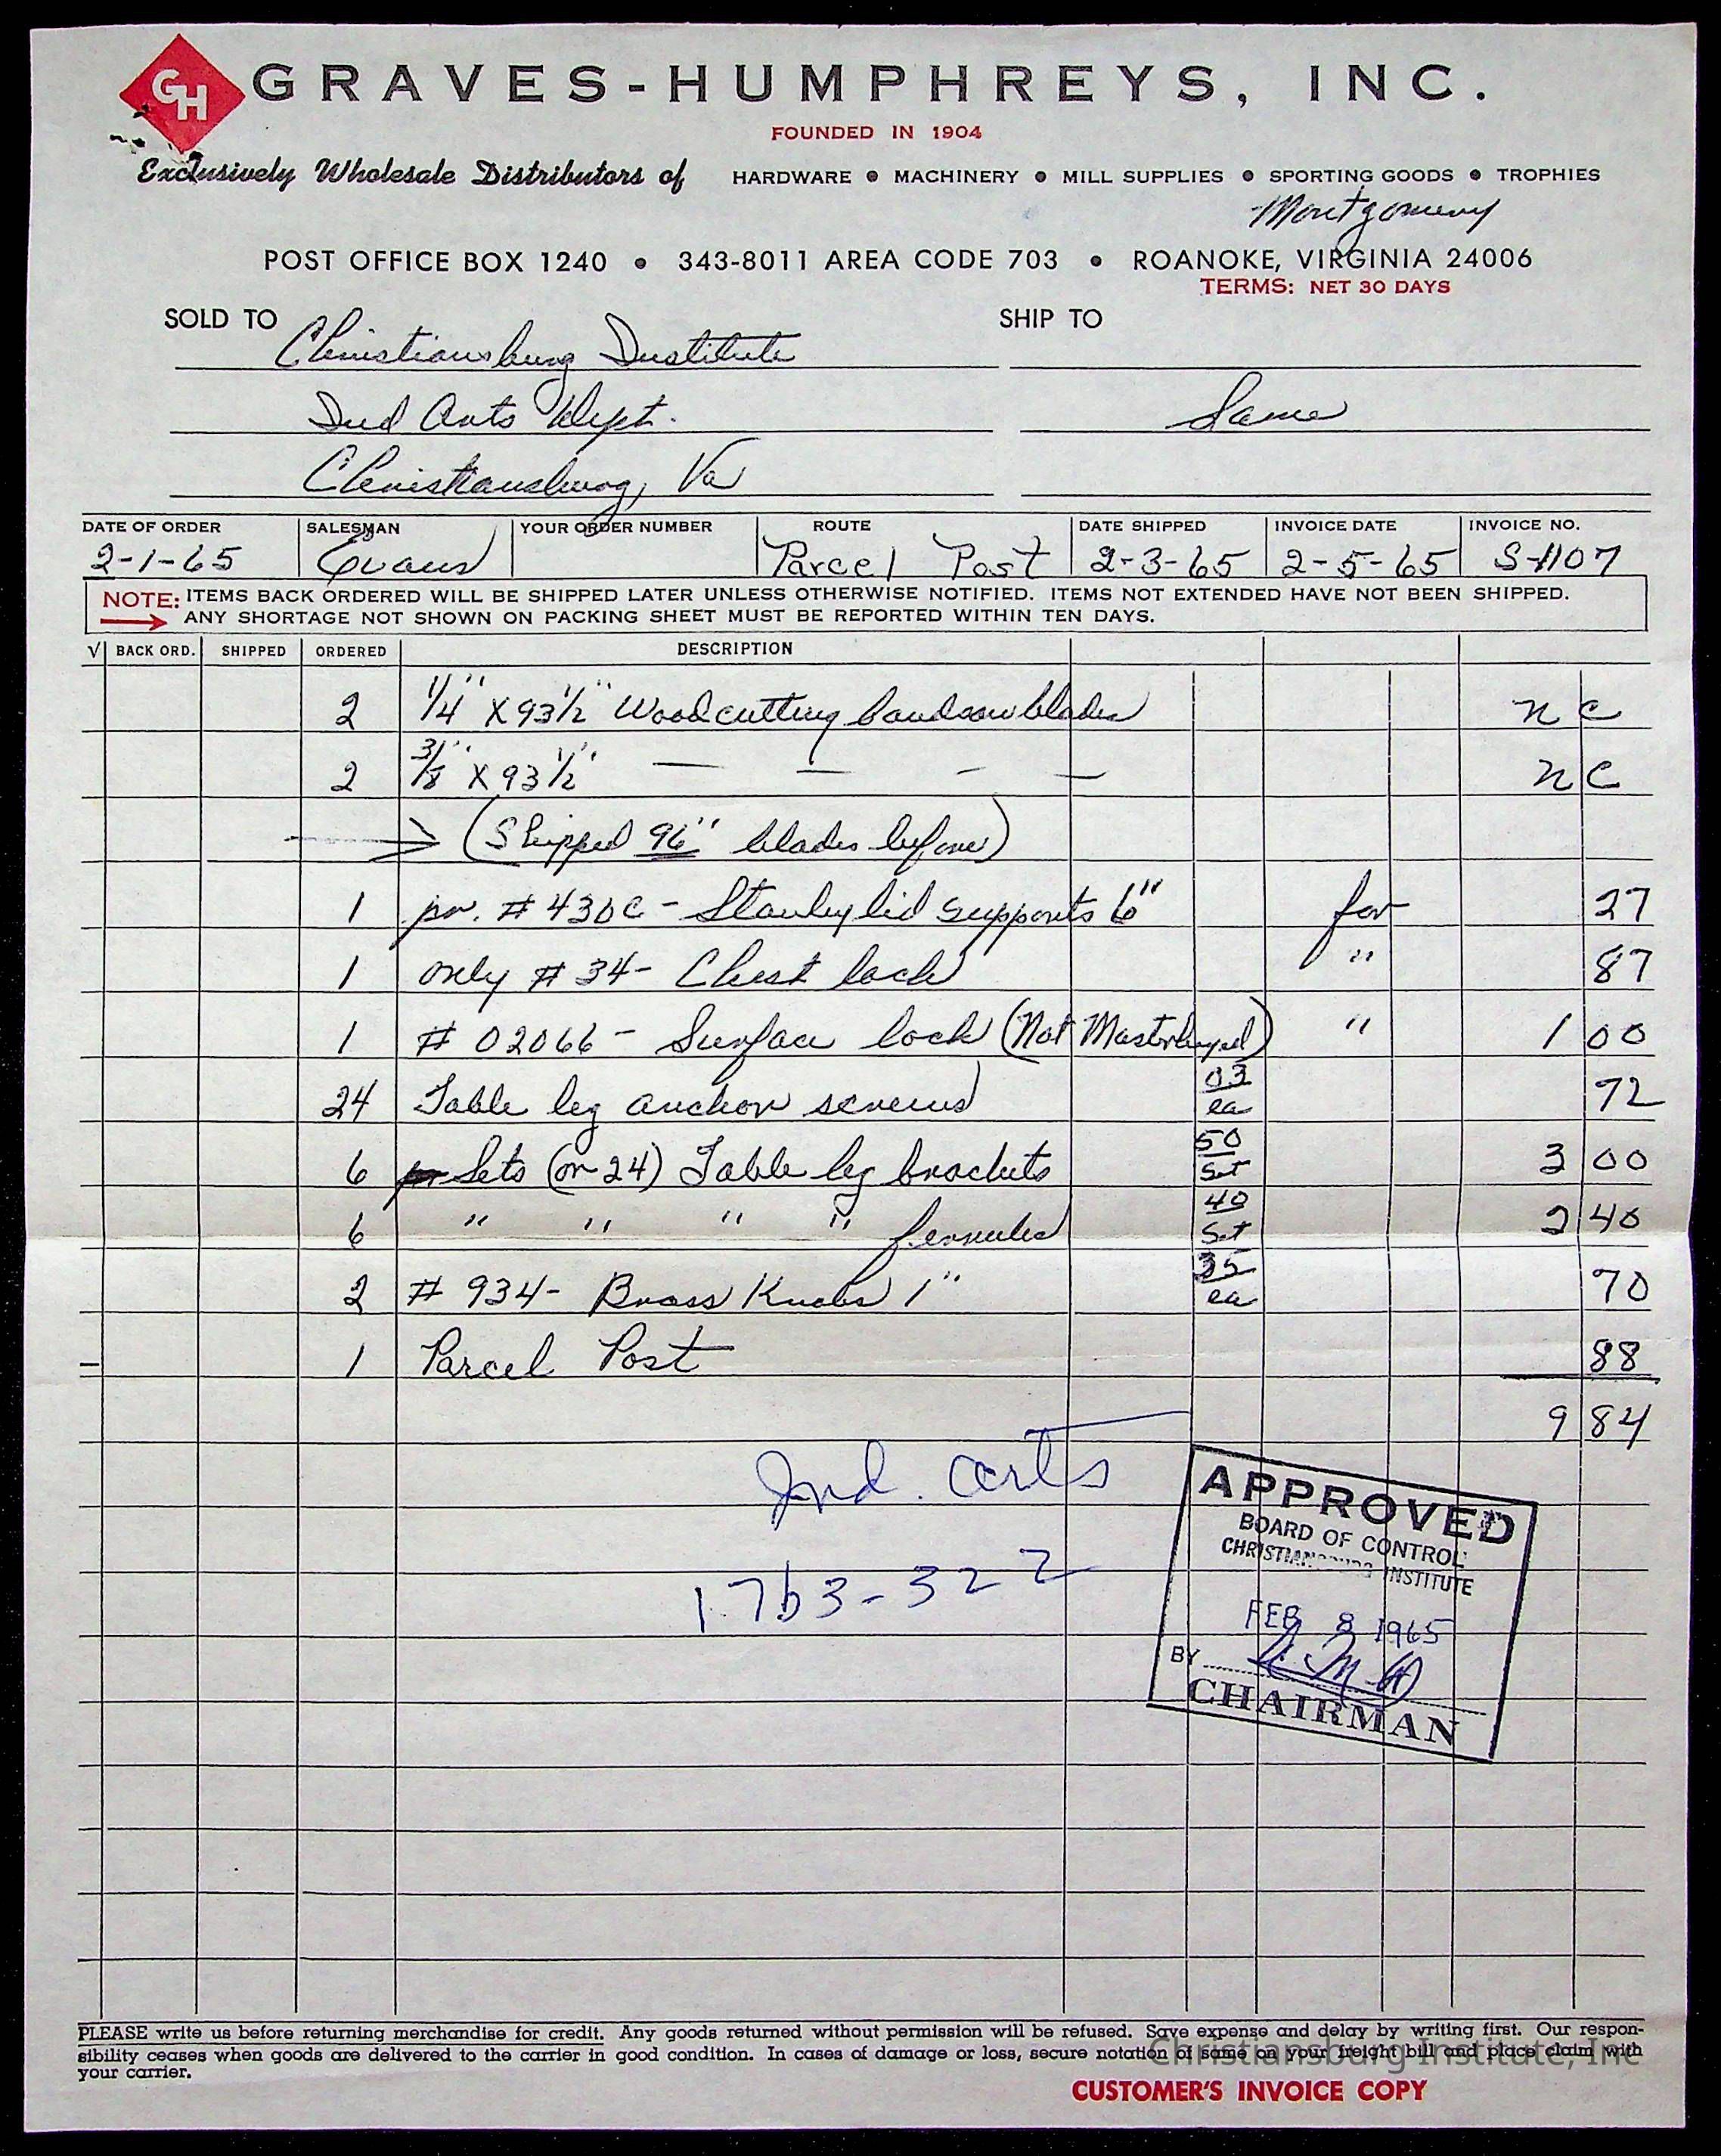 GH GRAVES-HUMPHREYS, INC.
FOUNDED IN 1904
Exclusively Wholesale Distributors of HARDWARE • MACHINERY • MILL SUPPLIES • SPORTING GOODS • TROPHIES
Montgomery
POST OFFICE BOX 1240 • 343-8011 AREA CODE 703 • ROANOKE, VIRGINIA 24006
TERMS: NET 30 DAYS
SOLD TO SHIP TO
Christiansburg Institute
Ind Arts Dept. Same
Christiansburg, Va
DATE OF ORDER SALESMAN YOUR ORDER NUMBER ROUTE DATE SHIPPED INVOICE DATE INVOICE NO.
2-1-65 Evans Parcel Post 2-3-65 2-5-65 S-1107
NOTE: ITEMS BACK ORDERED WILL BE SHIPPED LATER UNLESS OTHERWISE NOTIFIED. ITEMS NOT EXTENDED HAVE NOT BEEN SHIPPED.
ANY SHORTAGE NOT SHOWN ON PACKING SHEET MUST BE REPORTED WITHIN TEN DAYS.
√ BACK ORD. SHIPPED ORDERED DESCRIPTION
2 1/4" X 93 1/2" Woodcutting bandsaw blades n c
2 3/8" X 93 1/2" — — - — n c
(Shipped 96" blades before)
1 pr. # 430C - Stanley lid supports 6" for 27
1 only # 34 - Chest lock " 87
1 # 02066 - Surface lock (Not Masterkeyed) " 1 00
24 Table leg anchor screws 03 ea 72
6 Sets (or 24) Table leg brackets 50 Set 3 00
6 " " " " ferrules 40 Set 2 40
2 # 934 - Brass Knobs 1" 35 ea 70
1 Parcel Post 88
9 84
Ind. arts
1763-322
APPROVED
BOARD OF CONTROL
CHRISTIANSBURG INSTITUTE
FEB 8 1965
BY
CHAIRMAN
PLEASE write us before returning merchandise for credit. Any goods returned without permission will be refused. Save expense and delay by writing first. Our respon-
sibility ceases when goods are delivered to the carrier in good condition. In cases of damage or loss, secure notation of same on your freight bill and place claim with
your carrier.
Christiansburg Institute, Inc
CUSTOMER'S INVOICE COPY